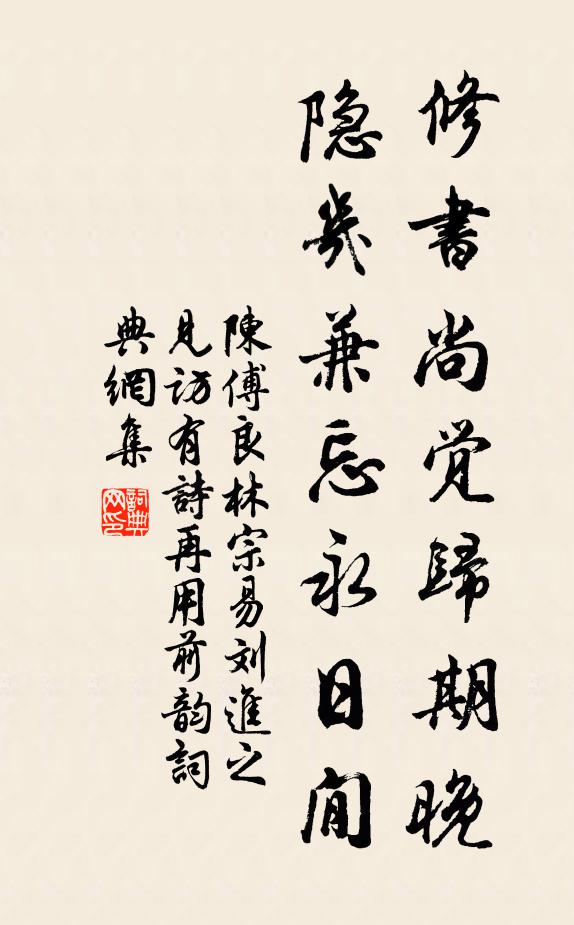 修書尚觉歸期晚
隐幾兼忘永日閒
陳傅良林宗易刘進之
見訪有詩再用前韵詞
典網集
詞典網印